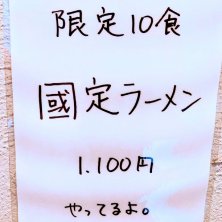 限定10食
國定ラーメン
1.100円
やってるよ。